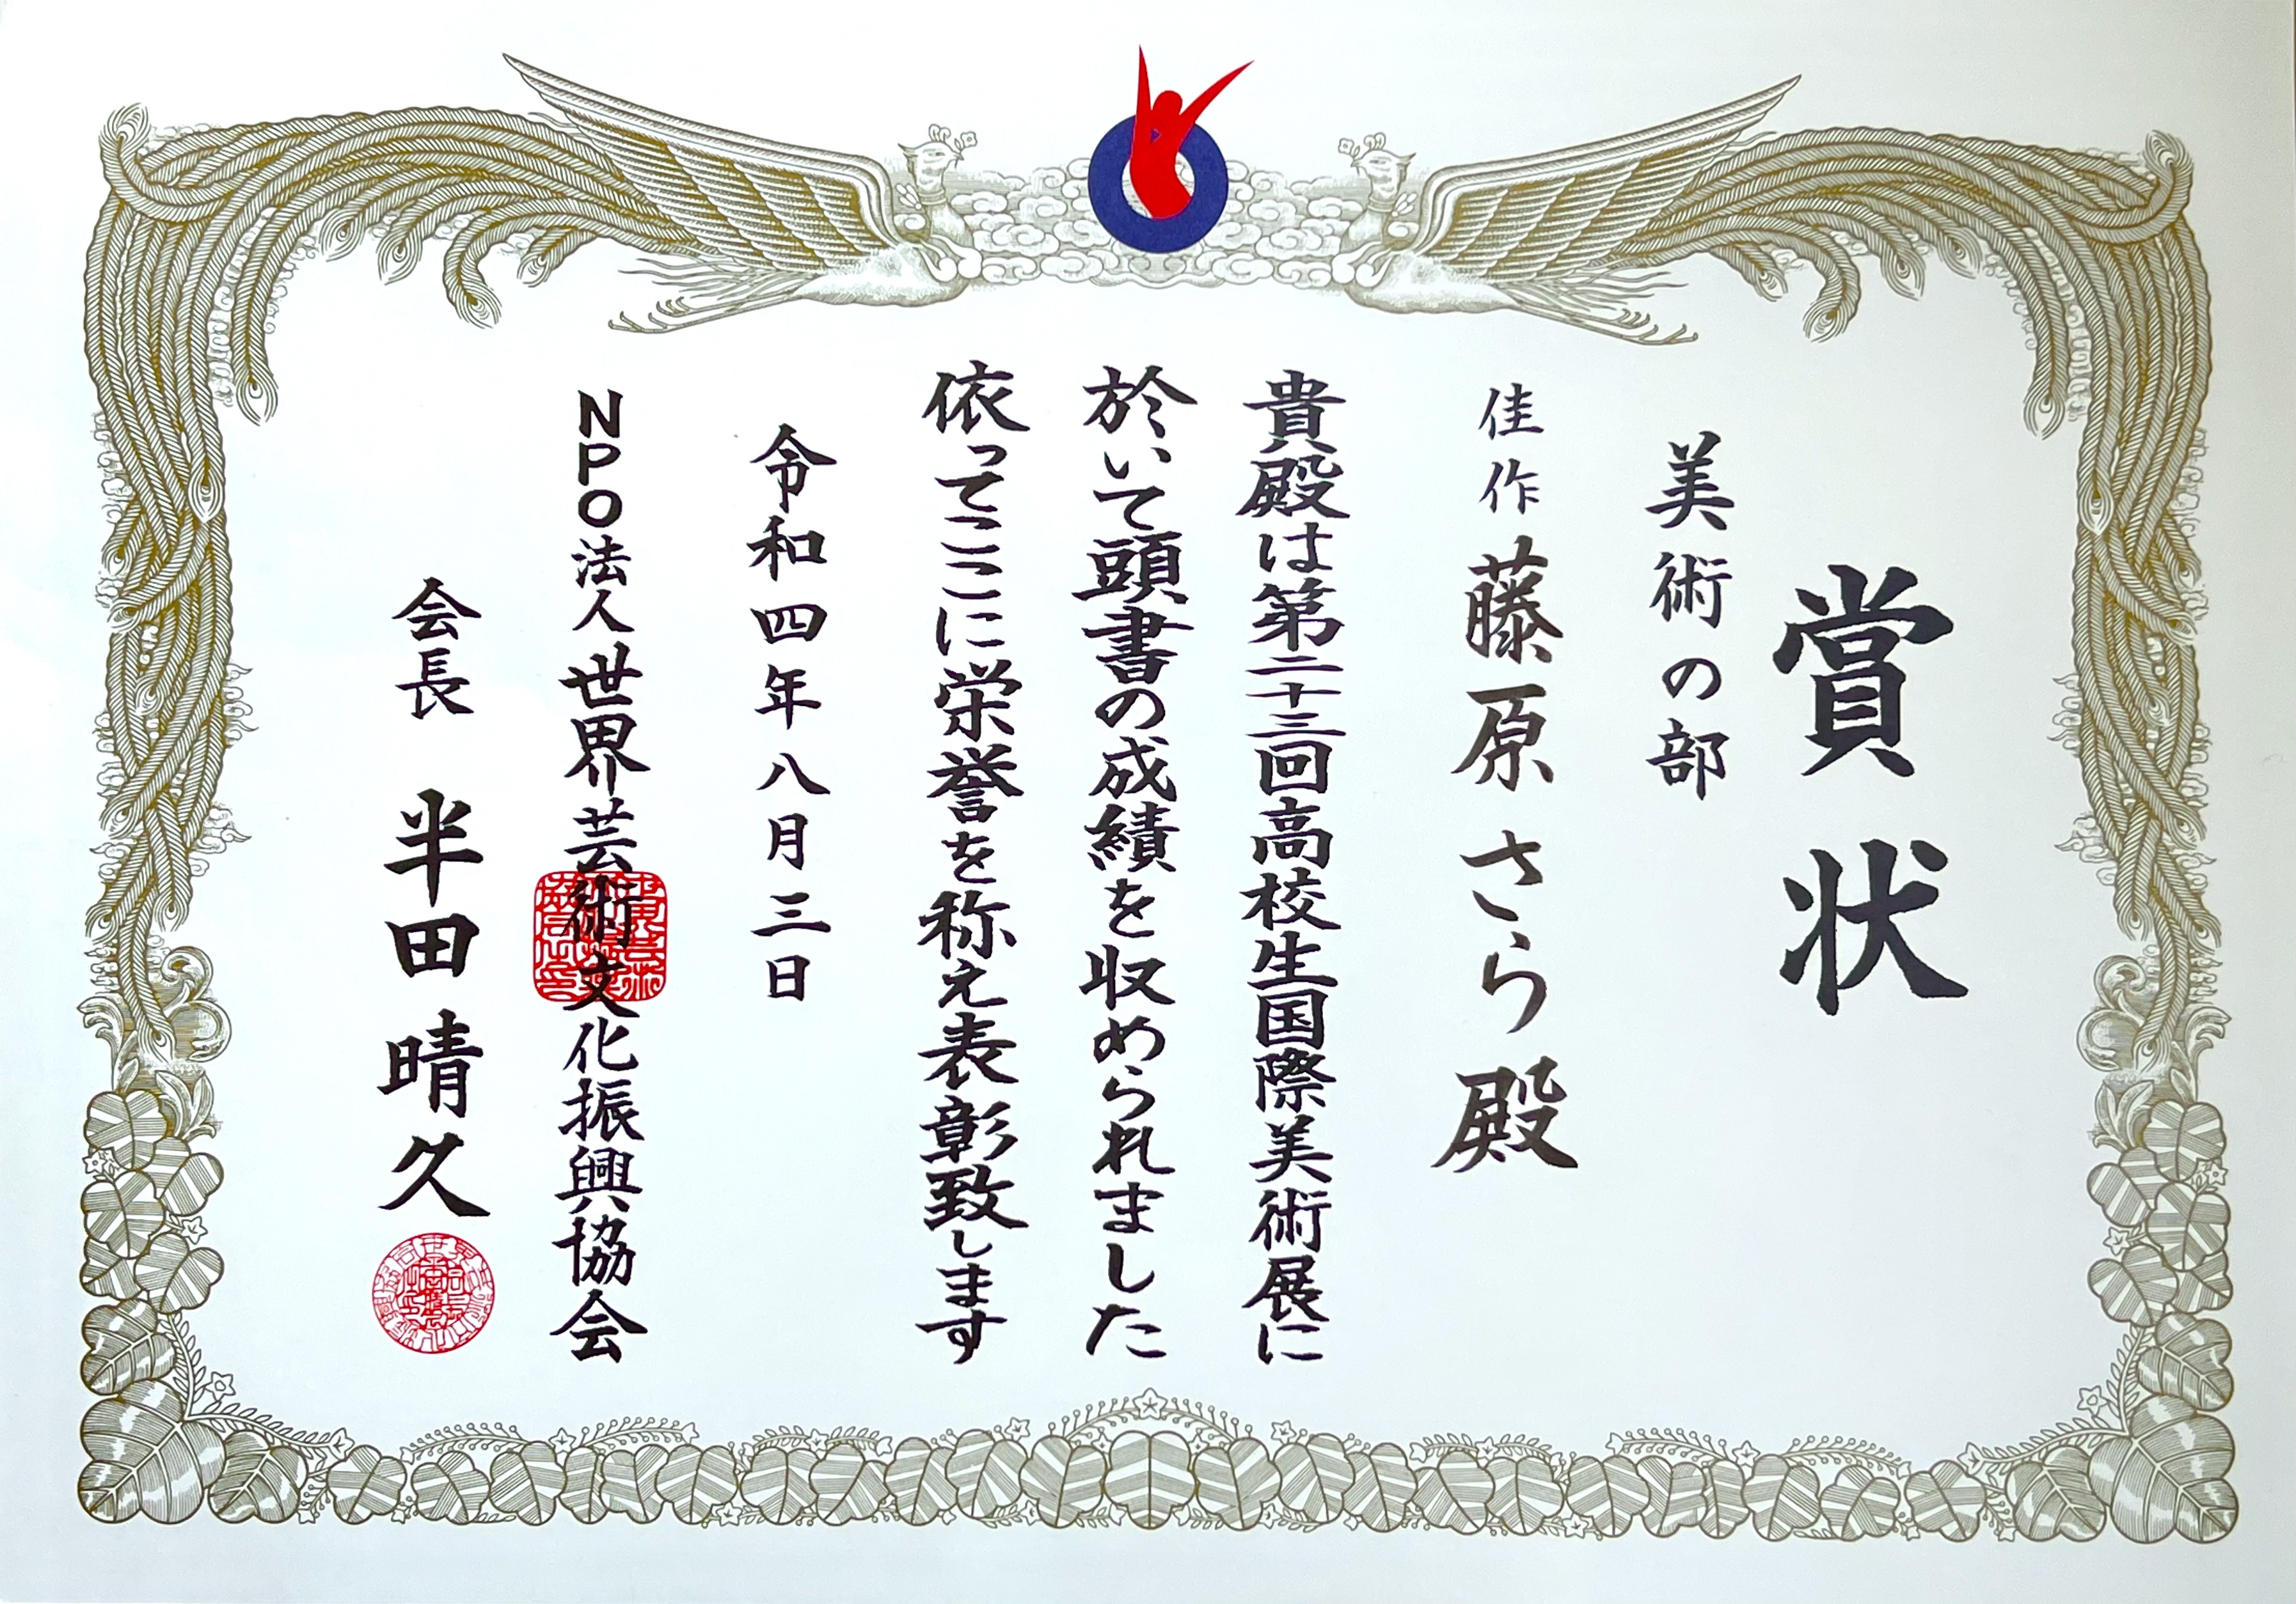 賞状
美術の部
佳作 藤原さら殿
貴殿は第二十三回高校生国際美術展に
於いて頭書の成績を収められました
依ってここに栄誉を称え表彰致します
令和四年八月三日
NPO法人世界芸術文化振興協会
会長 半田晴久